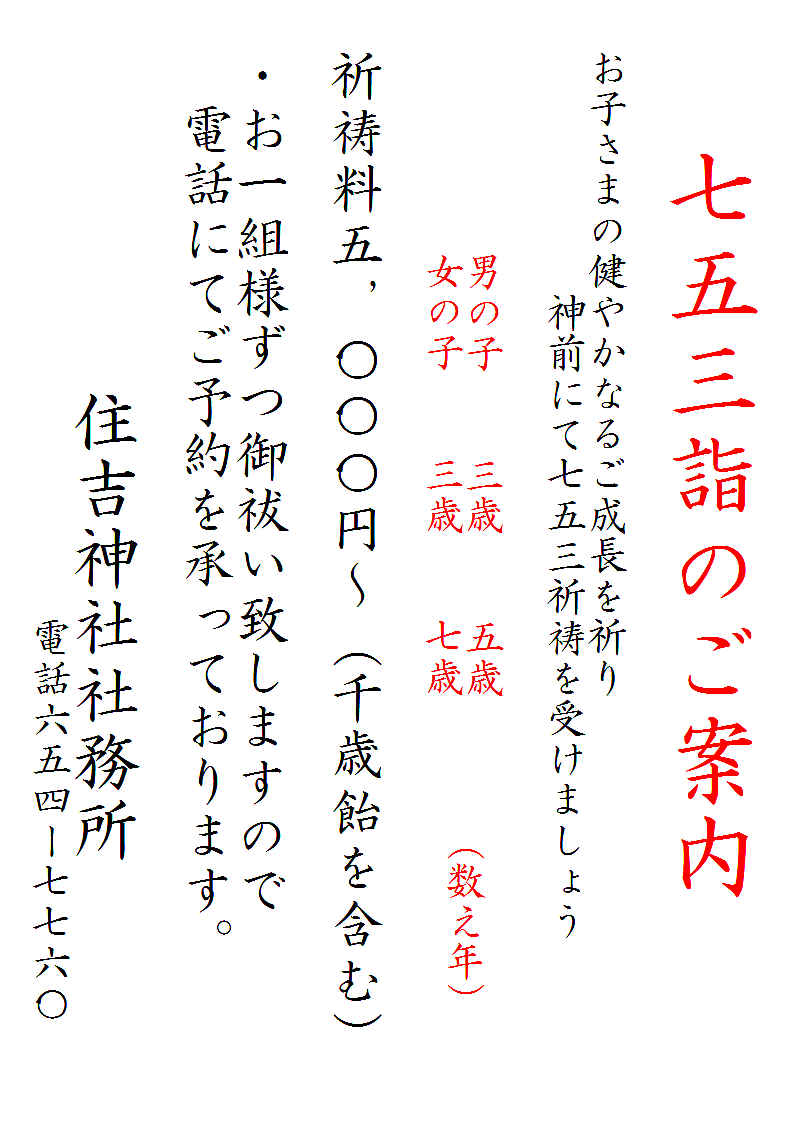 七五三詣のご案内
お子さまの健やかなるご成長を祈り
神前にて七五三祈祷を受けましょう
男の子　三歳　五歳
女の子　三歳　七歳
（数え年）
祈祷料五，〇〇〇円～（千歳飴を含む）
・お一組様ずつ御祓い致しますので
電話にてご予約を承っております。
住吉神社社務所
電話六五四ー七七六〇